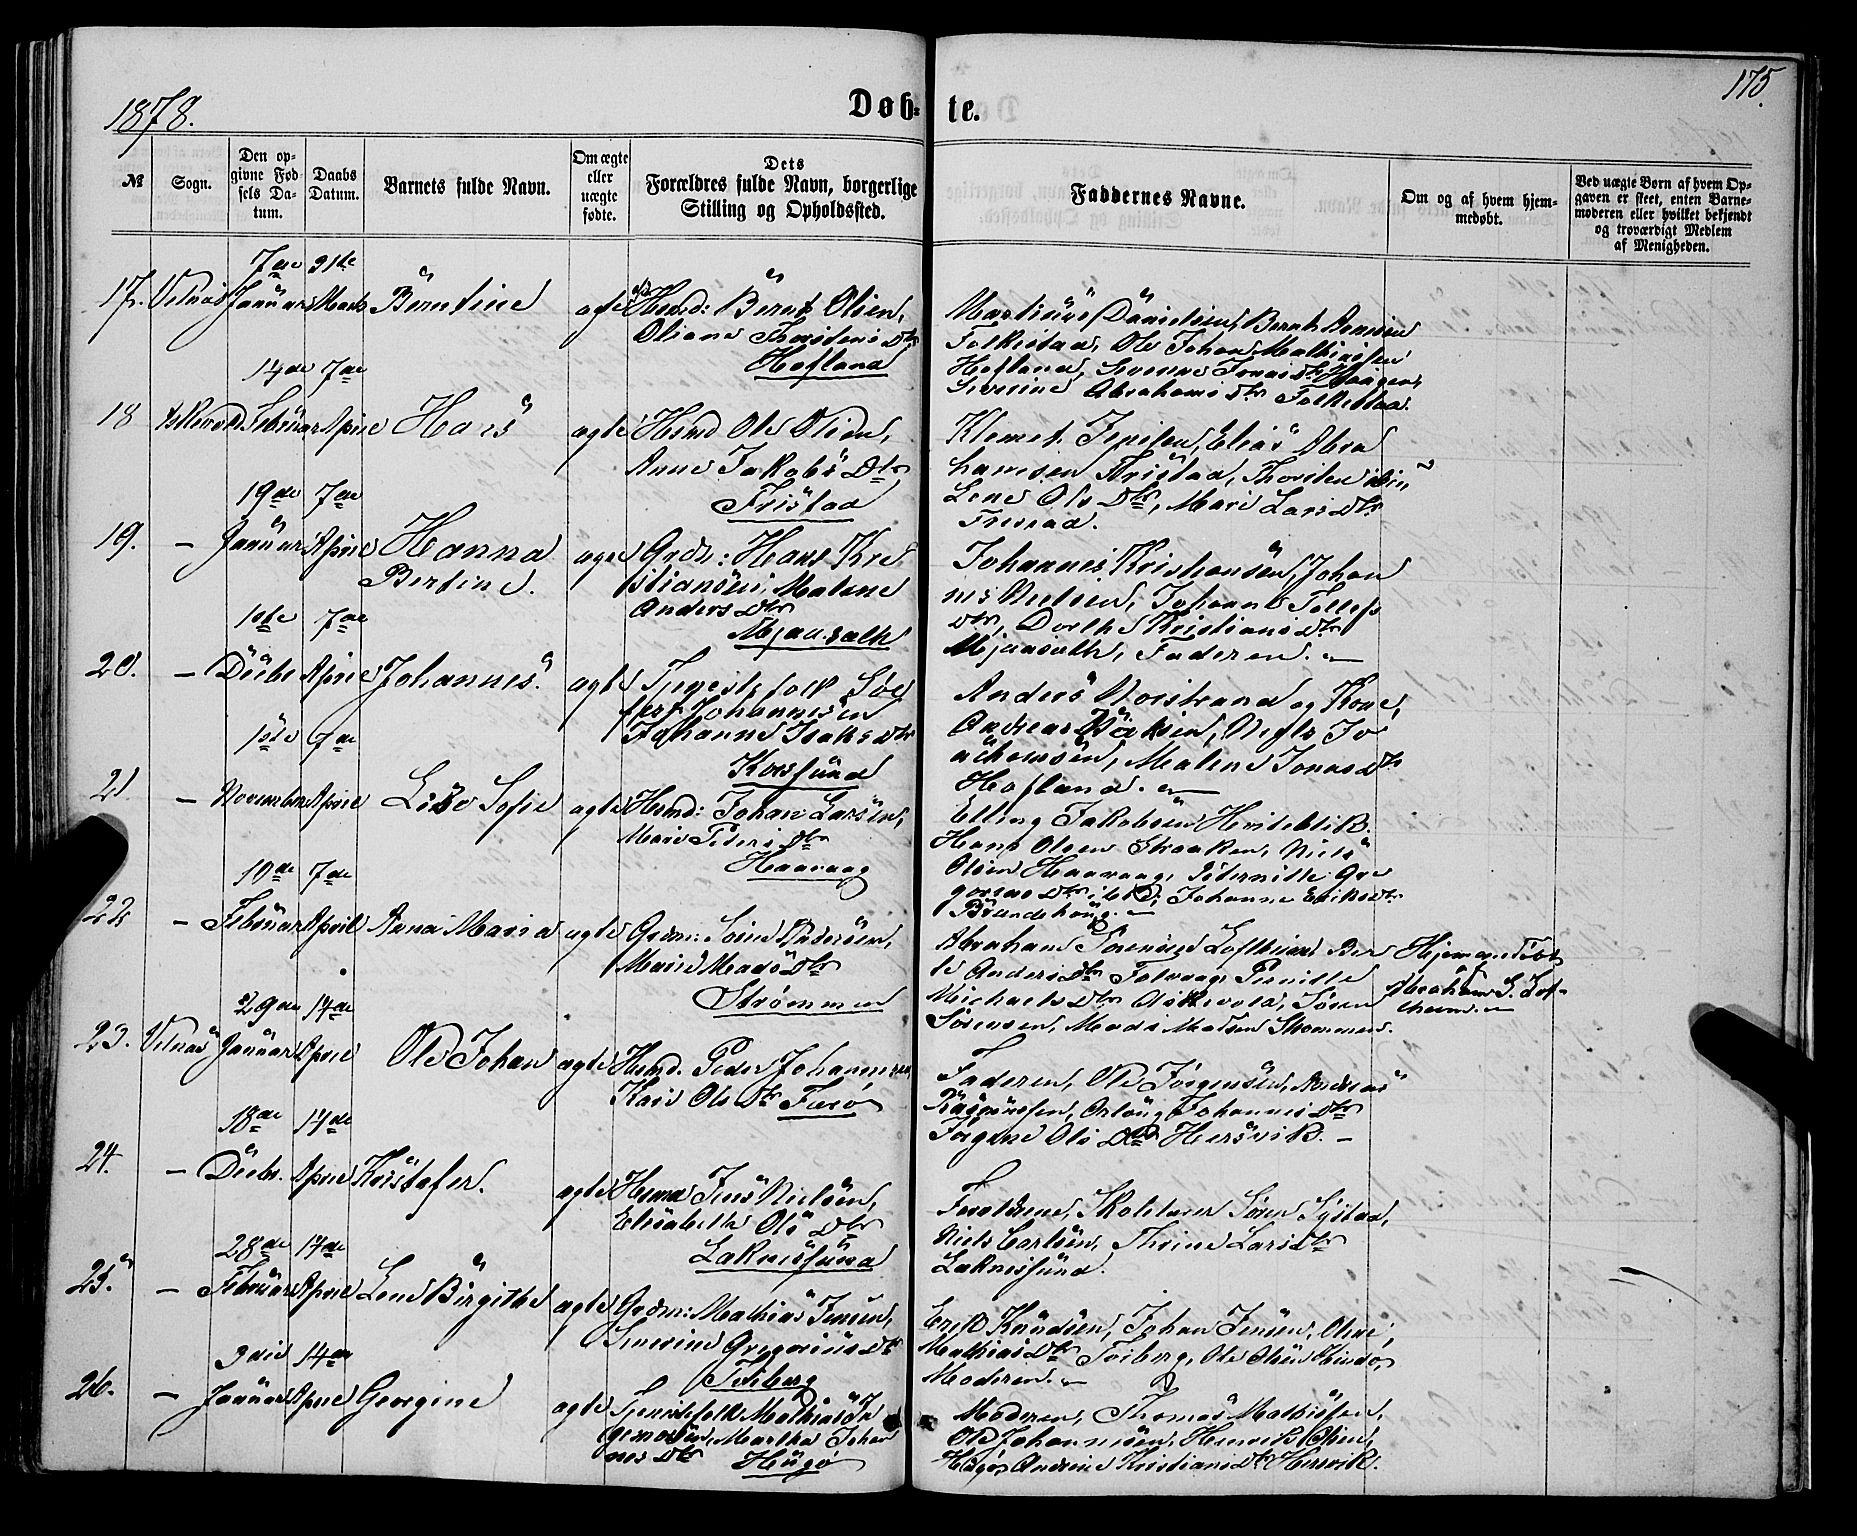 1878.
Døb-te.
175.
№
Sogn.
Den op-
givne Fød-
sels Da-
tum.
Daabs
Datum.
Barnets fulde Navn.
Om ægte
eller
uægte
fødte.
Dets
Forældres fulde Navn, borgerlige
Stilling og Opholdssted.
Faddernes Navne.
Om og af hvem hjem-
medøbt.
Ved uægte Børn af hvem Op-
gaven er skeet, enten Barne-
moderen eller hvilket bekjendt
og troværdigt Medlem
af Menigheden.
17. 7de Januar 31te Marts Berntine ægte Husmd: Bernt Olsen,
Oliane Thorsteins Dtr
Hofland
Bernt
Folkestad, Ole Johan Mathiassen
Hofland,
Severine Abrahams Dtr Folkestad.
18 Askevold 14de Februar 7de April Hans ægte Husmd Ole Olsen,
Anne Jakobs Dtr
Fristad
Klemet Jensen, Elias Abra
hamsen Fristad, Thorsten
Lene Ols Dtr, Mari Lars Dtr
Fristad.
19. - 19de Januar 7de April Hanna
Bertine. ægte Grdm: Hans Kri
stiansen, Malene
Anders Dtr
Mjaasath
Johannes Kristiansen, Johan
nes Nielsen, Johanne Tollefs
Dtr, Dorthe Kristians Dtr
Mjaasath, Faderen. -
20. - 1ste Decbr 7de April Johannes. ægte Tjenestefolk
Johannesen
Johanne Isaks Dtr
Korssund
Anders Norstrand og Kone,
Andreas Niels Jo
achimsen, Malene Jonas Dtr
Hofland. -
21 - 1ste November 7de April Lise Sofie ægte Husmd: Johan Larsen,
Mari Peders Dtr
Haavaag
Elling Jakobsen
Hans Olsen Niels
Olsen Haavaag, Peternille Gre
gorius Dtr ibid, Johanne Eriks Dtr
22 - 19de Februar 7de April Anna Maria ægte Grdm: Pedersen,
Marie Mads Dtr
Strømmen
Abraham Sørensen Loftheim, Ber
te Anders Dtr Pernille
Michaels Dtr Askevold, Søren
Sørensen, Mads Madsen Strømmen.
Hjemmedøbt
af
Abraham S. Lof-
theim. -
23. Vilnæs 29de Januar 14de April Ole Johan ægte Husmd. Peder Johannesen
Kari Ols Dtr Færø
Faderen, Ole Jørgensen, Andreas
Rasmussen, Johannes Dtr
Jørgine Ols Dtr Hersvik. -
24. - 18de Decbr. 14de April Kristofer. ægte Husmd Jens Nielsen,
Elisabeth Ols Dtr
Laknessund
Forældrene, Skolelærer Søren Systad,
Niels Carlsen, Thrine Lars Dtr
Laknessund.
25. - 28de Februar 14de April Lene Birgithe ægte Grdm: Mathias Jensen,
Severine Gregorius Dtr
Teiberg
Erik Knudsen, Johan Jensen, Oline
Mathias Dtr Teiberg, Ole Olsen
Moderen. -
26. - 3die Januar 14de April Georgine ægte Tjenestefolk Mathias In
gemarsen, Martha Johan
nes Dtr Hugø
Moderen, Thomas Mathissen,
Ole Johannesen, Henrik Olsen,
Hugø, Andrine Kristians Dtr Hersvik.